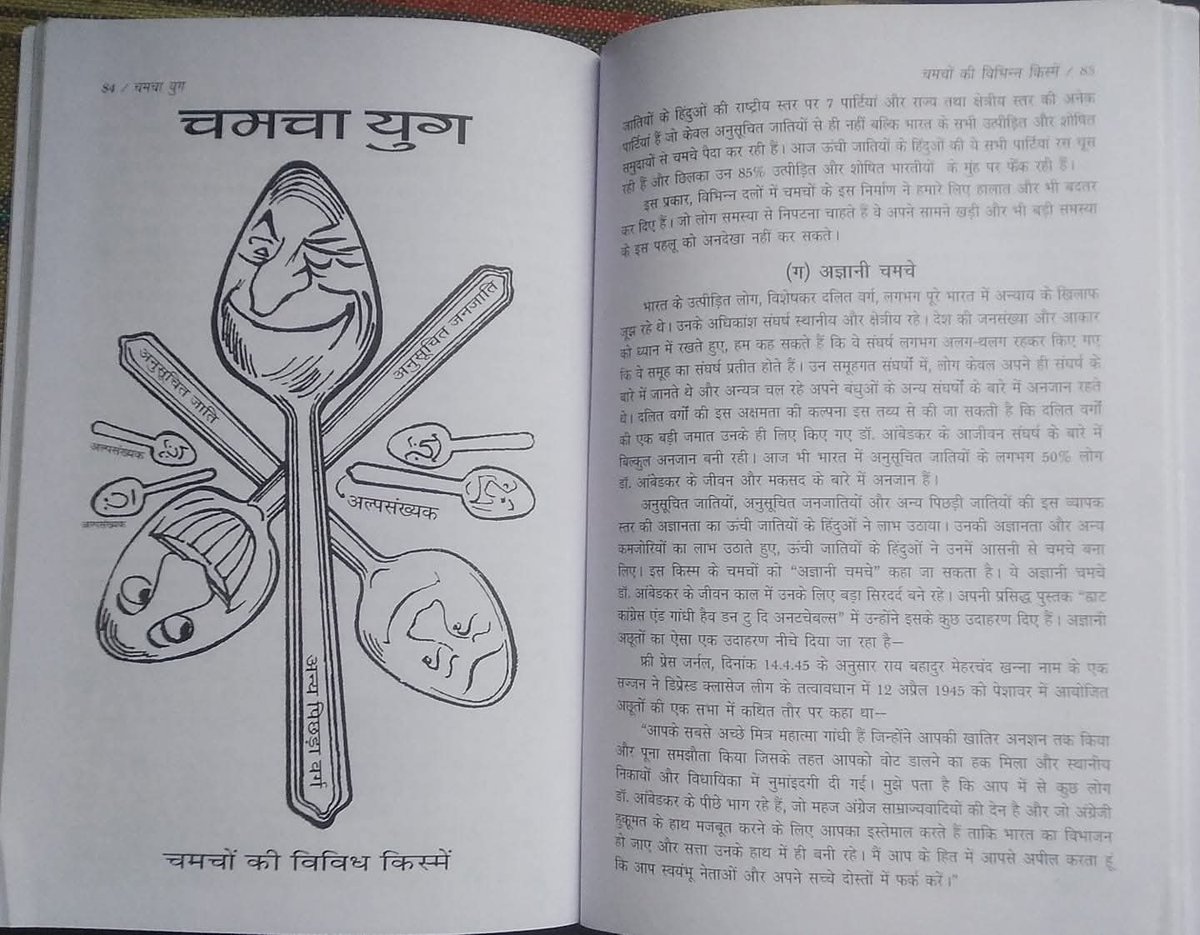 84 / चमचा युग
चमचा युग
अनुसूचित जाति
अनुसूचित जनजाति
अल्पसंख्यक
अल्पसंख्यक
अल्पसंख्यक
अन्य पिछड़ा वर्ग
चमचों की विविध किस्में
चमचों की विभिन्न किस्में / 85
जातियों के हिंदुओं की राष्ट्रीय स्तर पर 7 पार्टियां और राज्य तथा क्षेत्रीय स्तर की अनेक
पार्टियां हैं जो केवल अनुसूचित जातियों से ही नहीं बल्कि भारत के सभी उत्पीड़ित और शोषित
समुदायों से चमचे पैदा कर रही हैं। आज ऊंची जातियों के हिंदुओं की ये सभी पार्टियां रस चूस
रही हैं और छिलका उन 85% उत्पीड़ित और शोषित भारतीयों के मुंह पर फेंक रही हैं।
इस प्रकार, विभिन्न दलों में चमचों के इस निर्माण ने हमारे लिए हालात और भी बदतर
कर दिए हैं। जो लोग समस्या से निपटना चाहते हैं वे अपने सामने खड़ी और भी बड़ी समस्या
के इस पहलू को अनदेखा नहीं कर सकते।
(ग) अज्ञानी चमचे
भारत के उत्पीड़ित लोग, विशेषकर दलित वर्ग, लगभग पूरे भारत में अन्याय के खिलाफ
जूझ रहे थे। उनके अधिकांश संघर्ष स्थानीय और क्षेत्रीय रहे। देश की जनसंख्या और आकार
को ध्यान में रखते हुए, हम कह सकते हैं कि वे संघर्ष लगभग अलग-थलग रहकर किए गए
कि वे समूह का संघर्ष प्रतीत होते हैं। उन समूहगत संघर्षों में, लोग केवल अपने ही संघर्ष के
बारे में जानते थे और अन्यत्र चल रहे अपने बंधुओं के अन्य संघर्षों के बारे में अनजान रहते
थे। दलित वर्गों की इस अक्षमता की कल्पना इस तथ्य से की जा सकती है कि दलित वर्गों
की एक बड़ी जमात उनके ही लिए किए गए डॉ. आंबेडकर के आजीवन संघर्ष के बारे में
बिल्कुल अनजान बनी रही। आज भी भारत में अनुसूचित जातियों के लगभग 50% लोग
डॉ. आंबेडकर के जीवन और मकसद के बारे में अनजान हैं।
अनुसूचित जातियों, अनुसूचित जनजातियों और अन्य पिछड़ी जातियों की इस व्यापक
स्तर की अज्ञानता का ऊंची जातियों के हिंदुओं ने लाभ उठाया। उनकी अज्ञानता और अन्य
कमजोरियों का लाभ उठाते हुए, ऊंची जातियों के हिंदुओं ने उनमें आसनी से चमचे बना
लिए। इस किस्म के चमचों को “अज्ञानी चमचे” कहा जा सकता है। ये अज्ञानी चमचे
डॉ. आंबेडकर के जीवन काल में उनके लिए बड़ा सिरदर्द बने रहे। अपनी प्रसिद्ध पुस्तक “ह्वाट
कांग्रेस एंड गांधी हैव डन टु दि अनटचेबल्स” में उन्होंने इसके कुछ उदाहरण दिए हैं। अज्ञानी
अछूतों का ऐसा एक उदाहरण नीचे दिया जा रहा है—
फ्री प्रेस जर्नल, दिनांक 14.4.45 के अनुसार राय बहादुर मेहरचंद खन्ना नाम के एक
सज्जन ने डिप्रेस्ड क्लासेज लीग के तत्वावधान में 12 अप्रैल 1945 को पेशावर में आयोजित
अछूतों की एक सभा में कथित तौर पर कहा था—
“आपके सबसे अच्छे मित्र महात्मा गांधी हैं जिन्होंने आपकी खातिर अनशन तक किया
और पूना समझौता किया जिसके तहत आपको वोट डालने का हक मिला और स्थानीय
निकायों और विधायिका में नुमांइदगी दी गई। मुझे पता है कि आप में से कुछ लोग
डॉ. आंबेडकर के पीछे भाग रहे हैं, जो महज अंग्रेज साम्राज्यवादियों की देन है और जो अंग्रेजी
हुकूमत के हाथ मजबूत करने के लिए आपका इस्तेमाल करते हैं ताकि भारत का विभाजन
हो जाए और सत्ता उनके हाथ में ही बनी रहे। मैं आप के हित में आपसे अपील करता हूं
कि आप स्वयंभू नेताओं और अपने सच्चे दोस्तों में फर्क करें।”